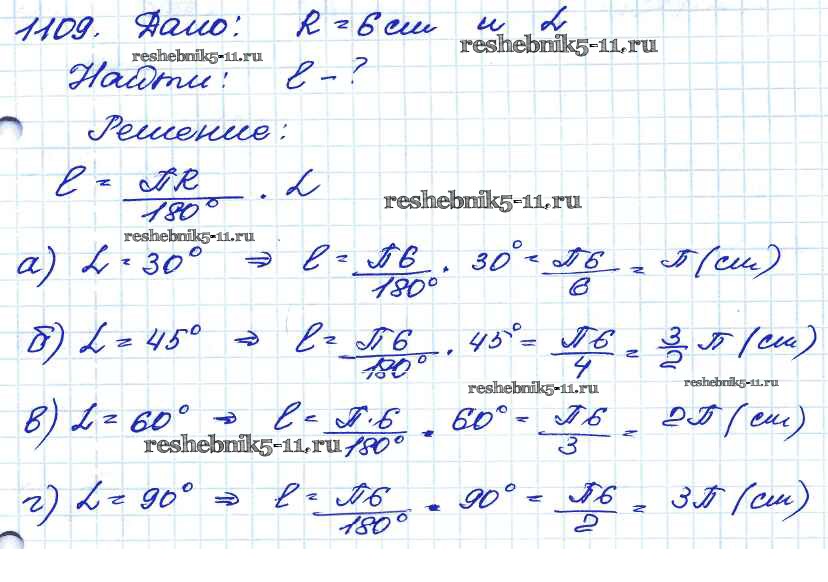 1109. Дано: R = 6 см и L
reshebnik5-11.ru reshebnik5-11.ru
Найти: l - ?
Решение:
l = ПR/180° · L
reshebnik5-11.ru
reshebnik5-11.ru
а) L = 30° ⇒ l = П6/180° · 30° = П6/6 = П (см)
б) L = 45° ⇒ l = П6/180° · 45° = П6/4 = 3/2 П (см)
reshebnik5-11.ru reshebnik5-11.ru
в) L = 60° ⇒ l = П·6/180° · 60° = П6/3 = 2П (см)
reshebnik5-11.ru
г) L = 90° ⇒ l = П6/180° · 90° = П6/2 = 3П (см)